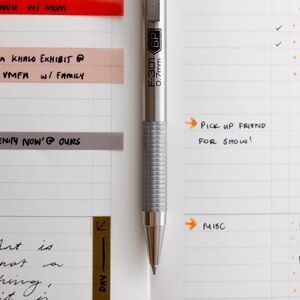 RCH W/ MOM
A KHALO EXHIBIT @
VMFA W/ FAMILY
ENITY NOW' @ OURS
Art is
not a
thing, it
DAY
BP
F-301
0.7mm
PICK UP FRIEND
FOR SHOW!
MISC